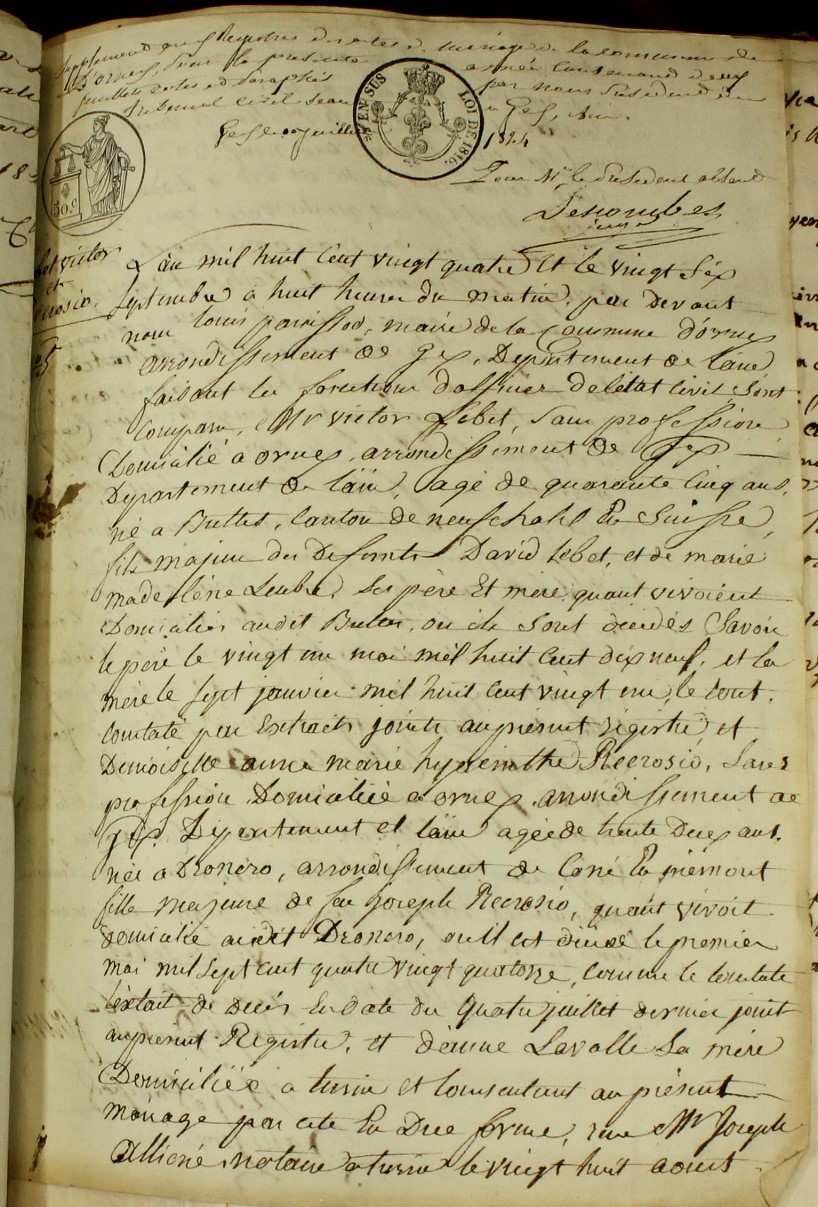 Supplement aux Registres des actes de mariage de la commune
d'ornex, pour la presente année contenant deux
feuillets cotés et paraphés par nous President du
tribunal civil seant a Gex, Ain.
1824
EN SUS
LOI DE 1816.
50 c
Pour Mr le President absent
Lescombes
juge
Lebet victor
et
Recrosio
L'an mil huit cent vingt quatre et le vingt Six
Septembre a huit heures du matin, par devant
nous louis parissod, maire de la Commune d'ornex
arrondissement de Gex, Departement de l'ain
faisant les fonctions d'officier de l'état civil Sont
comparu, Mr victor Lebet, sans profession
Domicilié a ornex, arrondissement de Gex
Departement de l'ain, agé de quarante cinq ans,
né a Buttes, canton de neufchatel En Suisse,
fils majeur des Defunts David lebet, et de marie
madelène Leuba, Ses père Et mère, quant vivoient
Domiciliés audit Buttes, ou ils sont décédés Savoir
le père le vingt un mai mil huit cent dix neuf, et la
mère le sept janvier mil huit cent vingt un, le tout
constaté par Extraits joints au présent régistre, et
Demoiselle anne marie hyacinthe Recrosio, Sans
profession, Domiciliée a ornex, arrondissement de
Gex, Departement et l'ain agée de trente Deux ans,
née a Dronero, arrondissement de Coni En piémont
fille majeure de feu joseph Recrosio, quant vivoit
domicilié audit Dronero, ou il est décédé le premier
mai mil sept cent quatre vingt quatorze, comme le constate
l'extait de decès En date du quatre juillet dernier joint
au présent Registre, et d'anne Lavalle Sa mère
Domiciliée a turin et consentant au présent
mariage par acte En Due forme, reçu Mr Joseph
notaire a turin le vingt huit aout